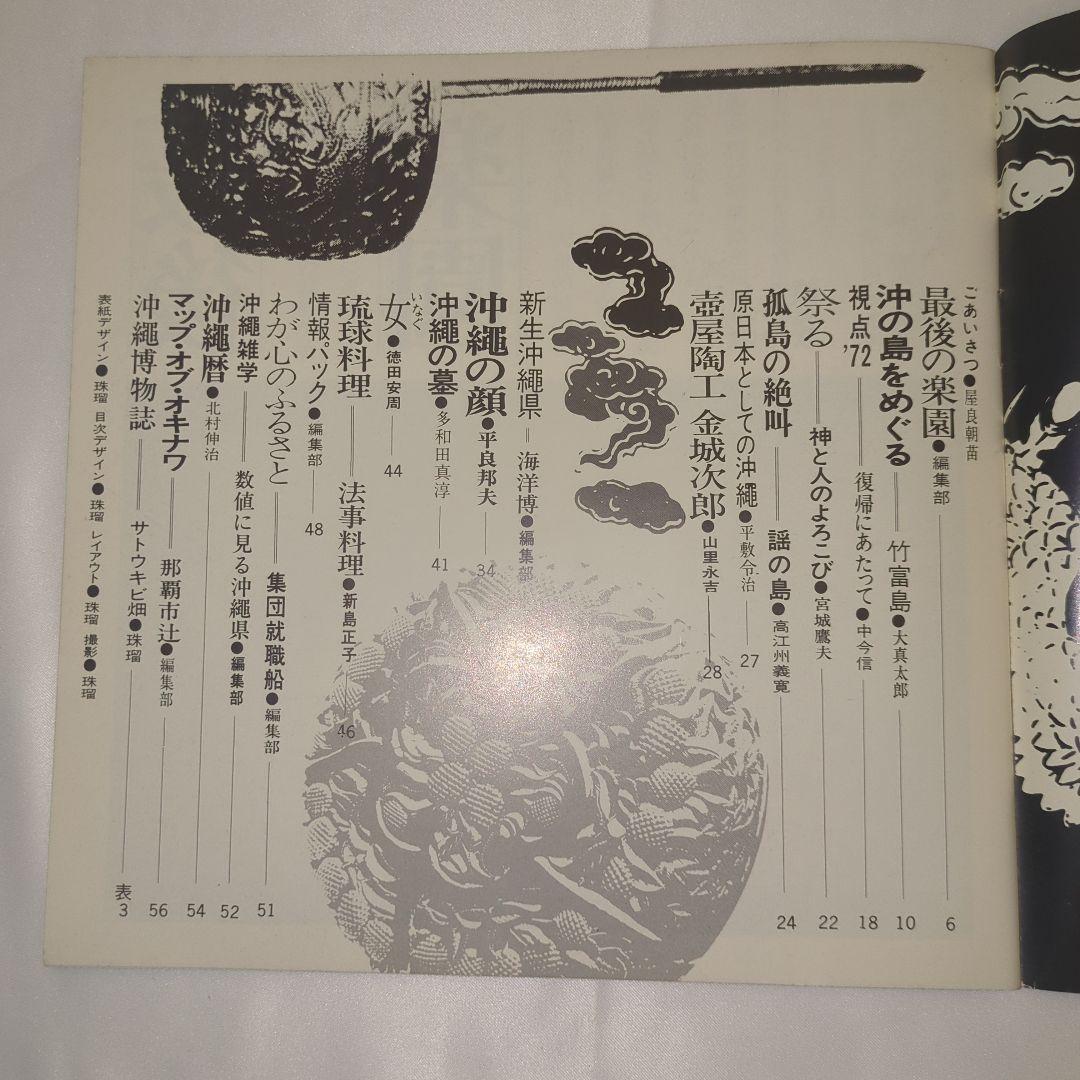 ごあいさつ●屋良朝苗
最後の楽園●編集部 6
沖の島をめぐる══竹富島●大真太郎 10
視点'72══復帰にあたって●中今信 18
祭る══神と人のよろこび●宮城鷹夫 22
孤島の絶叫══謡の島●高江州義寛 24
原日本としての沖縄●平敷令治 27
壺屋陶工 金城次郎●山里永吉 28
新生沖縄県＝海洋博●編集部
沖縄の顔●平良邦夫 34
沖縄の墓●多和田真淳 41
女●徳田安周 44
いなぐ
琉球料理══法事料理●新島正子 46
情報。パック●編集部 48
わが心のふるさと══集団就職船●編集部 51
沖縄雑学══数値に見る沖縄県●編集部 52
沖縄暦●北村伸治 54
マップ・オブ・オキナワ══那覇市辻●編集部 56
沖縄博物誌══サトウキビ畑●珠瑠 表3
表紙デザイン●珠瑠 目次デザイン●珠瑠 レイアウト●珠瑠 撮影●珠瑠